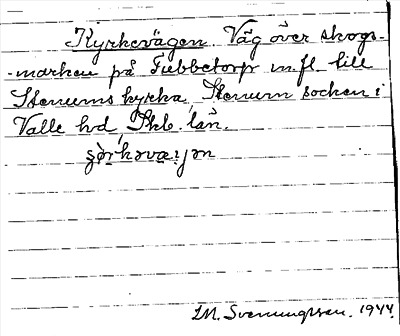 Kyrkevägen. Väg över skogs-
-marken på Fubbetorp m.fl. till
Stenums kyrka, Stenum socken i
Valle hd, Skb. län.
M. Svenungsson. 1944.